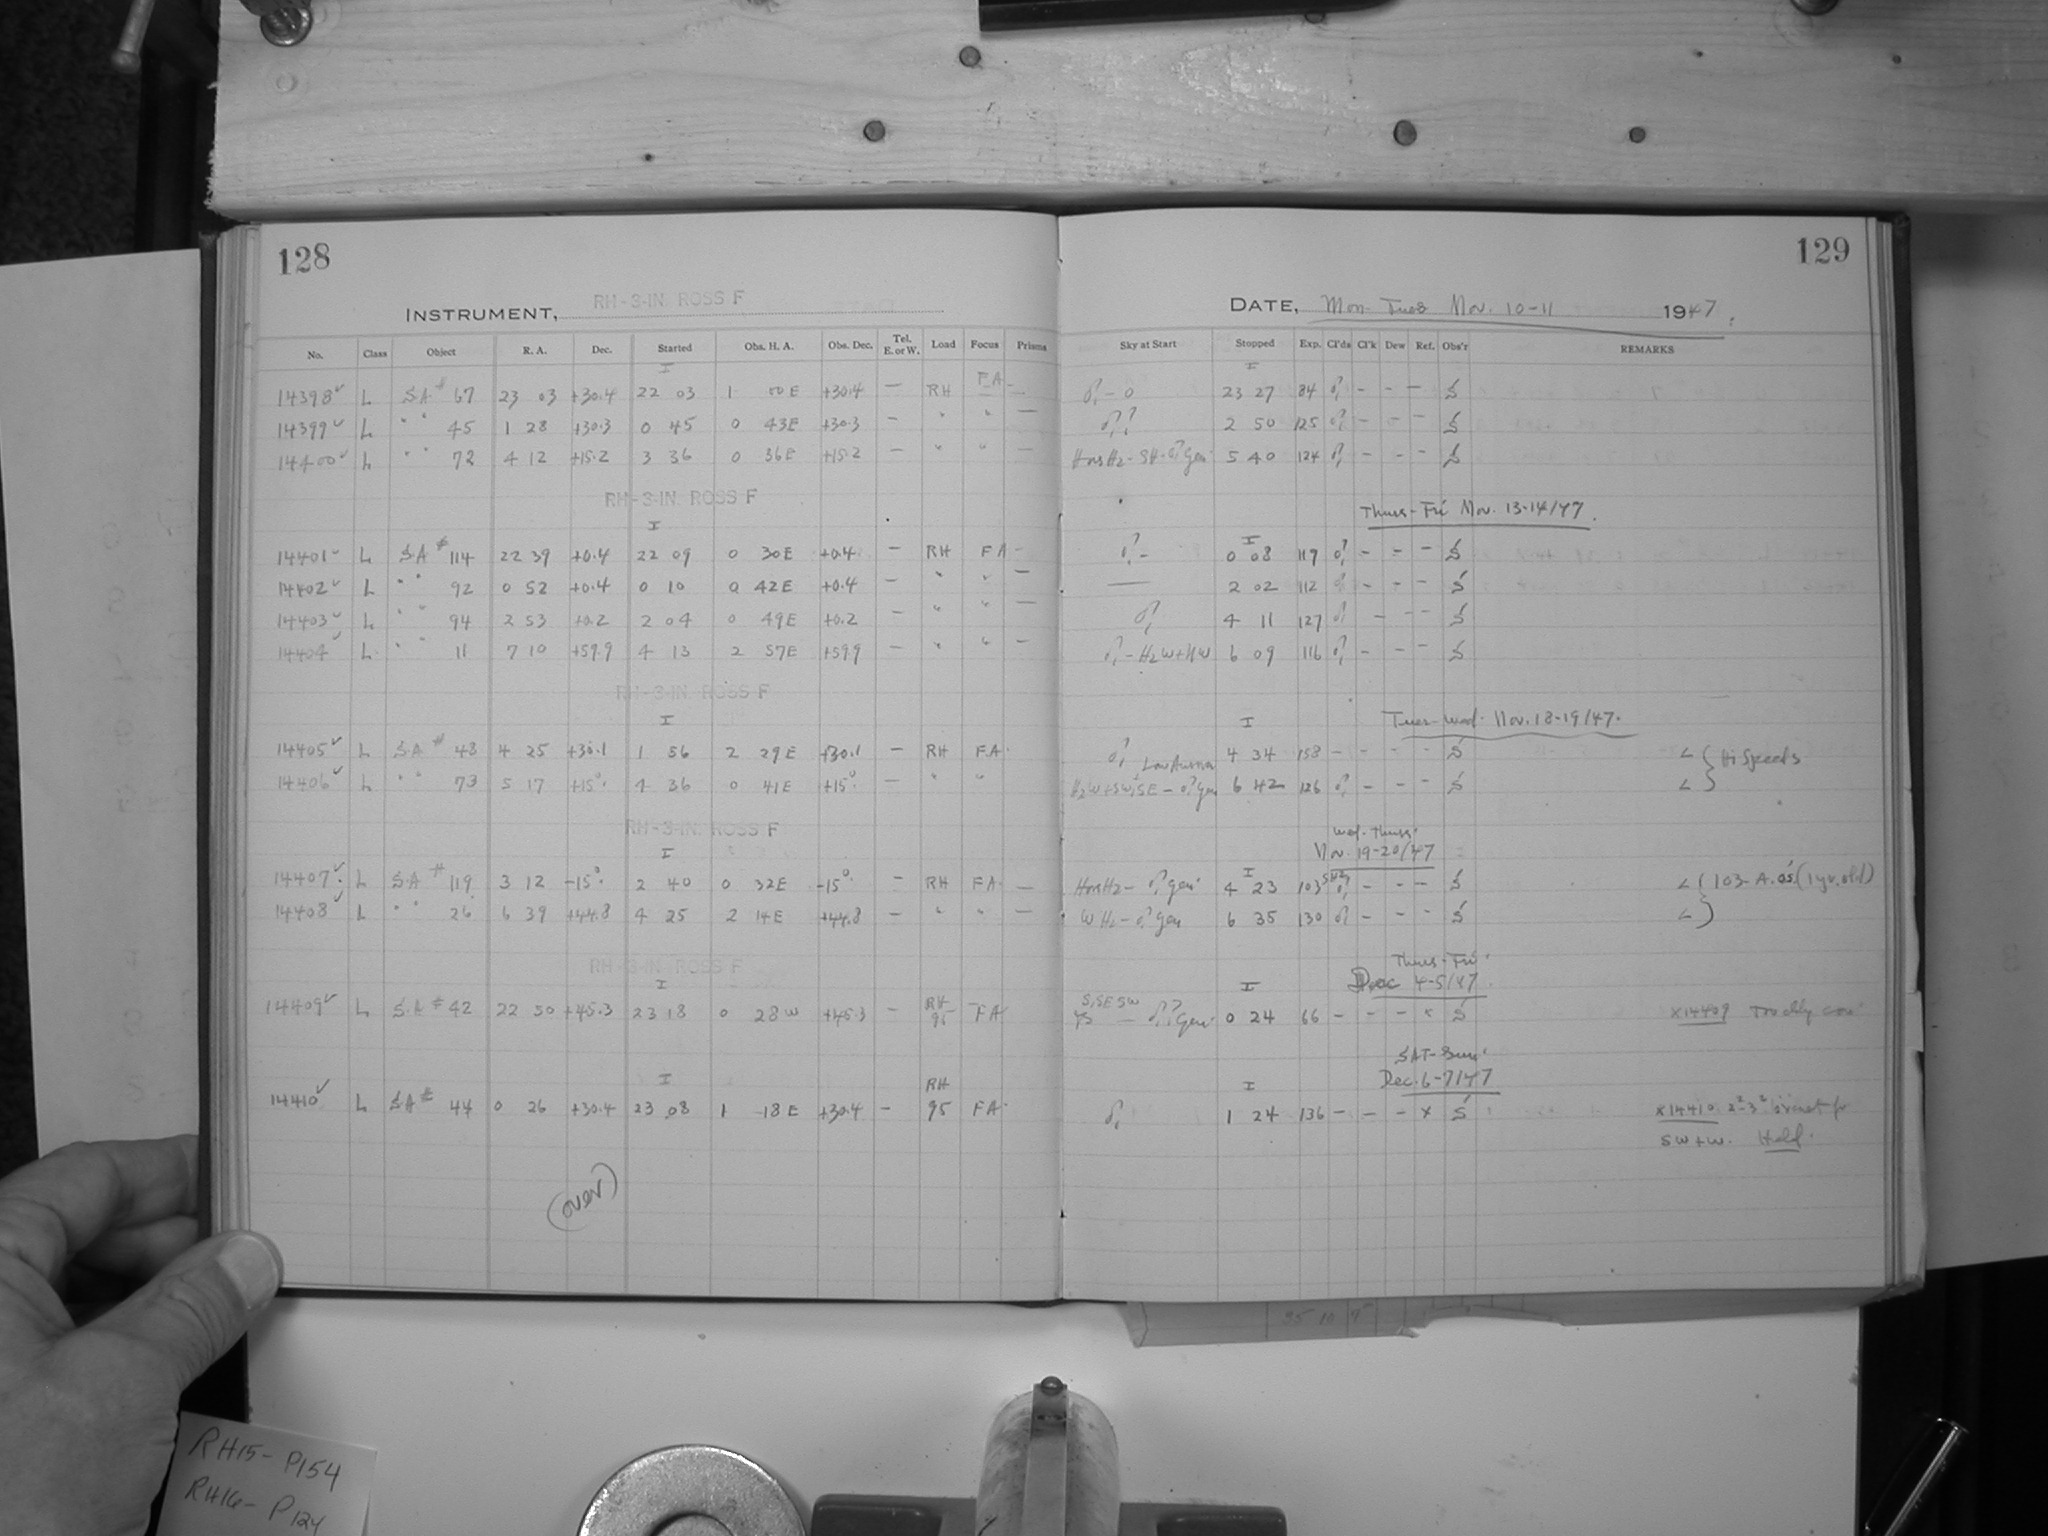 128
INSTRUMENT, RH-3-IN. ROSS F
No. Class Object R. A. Dec. Started Obs. H. A. Obs. Dec. Tel. E. or W. Load Focus Prisms
I
14398 ✓ L SA # 67 23 03 +30.4 22 03 1 00 E +30.4 — RH FA —
14399 ✓ L " " 45 1 28 +30.3 0 45 0 43E +30.3 — " " —
14400 ✓ L " " 72 4 12 +15.2 3 36 0 36E +15.2 — " " —
RH-3-IN. ROSS F
I
14401 ✓ L SA # 114 22 39 +0.4 22 09 0 30E +0.4 — RH FA —
14402 ✓ L " " 92 0 52 +0.4 0 10 0 42E +0.4 — " " —
14403 ✓ L " " 94 2 53 +0.2 2 04 0 49E +0.2 — " " —
14404 ✓ L " " 11 7 10 +59.9 4 13 2 57E +59.9 — " " —
RH-3-IN. ROSS F
I
14405 ✓ L SA # 48 4 25 +30.1 1 56 2 29E +30.1 — RH FA
14406 ✓ L " " 73 5 17 +15° 4 36 0 41E +15° — " "
RH-3-IN. ROSS F
I
14407 ✓ L SA # 119 3 12 -15° 2 40 0 32E -15° — RH FA —
14408 ✓ L " " 26 6 39 +44.8 4 25 2 14E +44.8 — " " —
RH-3-IN. ROSS F
I
14409 ✓ L SA # 42 22 50 +45.3 23 18 0 28W +45.3 — RH 95 FA
I RH
14410 ✓ L SA # 44 0 26 +30.4 23 08 1 18E +30.4 — 95 FA
(over)
129
DATE, Mon-Tues Nov. 10-11 1947
Sky at Start Stopped Exp. Cl'ds Cl'k Dew Ref. Obs'r REMARKS
I
23 27 84 — — — S
2 50 125 — — — S
5 40 124 — — — S
Thurs-Fri Nov. 13-14/47
I
0 08 119 — — — S
— 2 02 112 — — — S
4 11 127 — — — S
H2W+NW 6 09 116 — — — S
Tues-Wed. Nov. 18-19/47
I
4 34 158 — — — — S < Hi Speeds
Low Aurora
6 42 126 — — — S <
Wed-Thurs
Nov. 19-20/47
I
Gen 4 23 103 — — — S < 103-A.OS. (1 yr. old)
Gen 6 35 130 — — — S <
Thurs-Fri
Dec 4-5/47
I
S, SE SW Gen 0 24 66 — — — x S x14409
SAT-Sun
Dec. 6-7/47
I
1 24 136 — — — x S x14410
SW+W. Held.
RH15- P154
RH16- P124